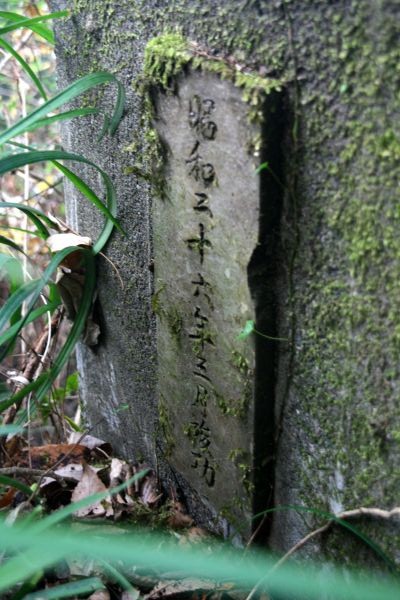 昭和三十六年三月竣功